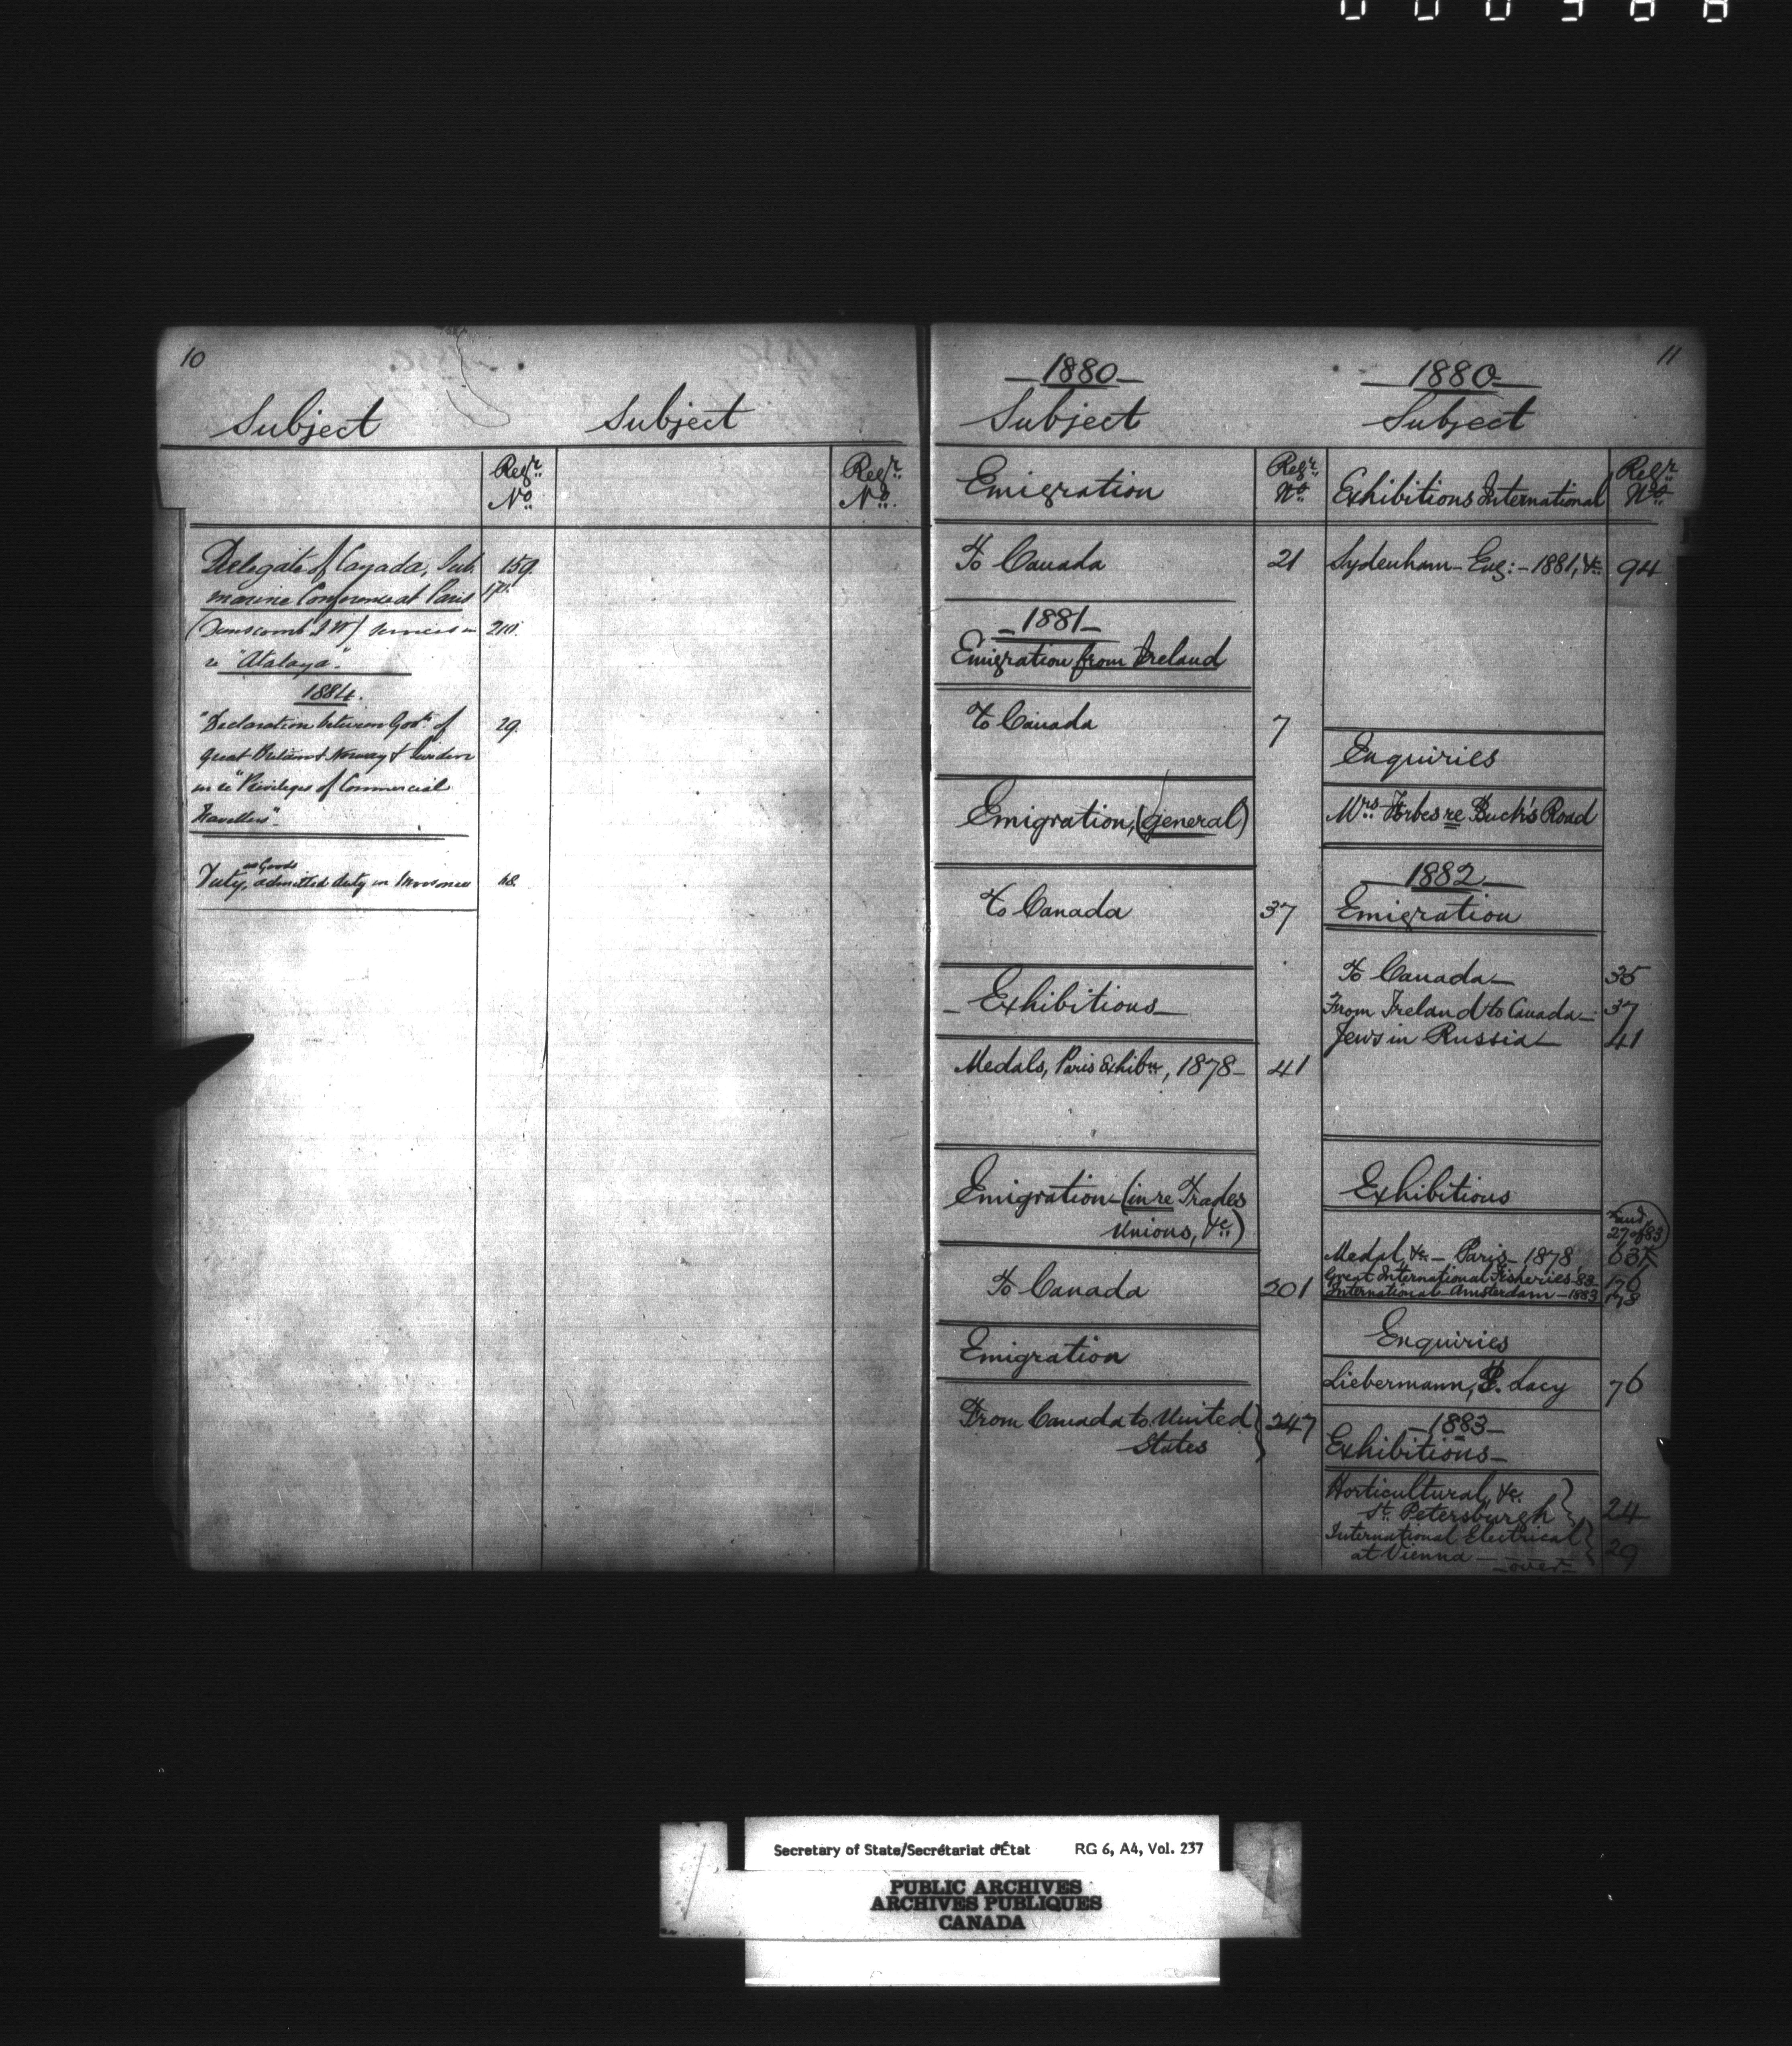 10
Subject
Subject
Regr.
No.
Regr.
No.
Delegate of Canada, Sub. 159.
marine Conference at Paris 171.
(Dunscomb J W) Services in 210.
re "Atalaya".
1884.
"Declaration between Govts. of 29.
Great Britain & Norway & Sweden
in re "Privileges of Commercial
Travellers".
on Goods
Duty, admitted duty in 68.
11
1880
Subject
Emigration
Regr.
No.
To Canada 21
1881
Emigration from Ireland
To Canada 7
Emigration, (general)
To Canada 37
Exhibitions
Medals, Paris Exhibn, 1878 41
Emigration (in re Trades
Unions, &c.)
To Canada 201
Emigration
From Canada to United 247
States
1880
Subject
Exhibitions International
Regr.
No.
Sydenham Eng: 1881, &c. 94
Enquiries
Mrs. Forbes re Buck's Road
1882
Emigration
To Canada 35
From Ireland to Canada 37
Jews in Russia 41
Exhibitions
x and
27 of 83
Medal, &c. Paris 1878 63x
Great International Fisheries 83 176
International Amsterdam 1883 178
Enquiries
Liebermann, P. Lacy 76
1883
Exhibitions
Horticultural, &c.
St. Petersburgh 24
International Electrical
at Vienna 29
over
Secretary of State/Secrétariat d'État RG 6, A4, Vol. 237
PUBLIC ARCHIVES
ARCHIVES PUBLIQUES
CANADA